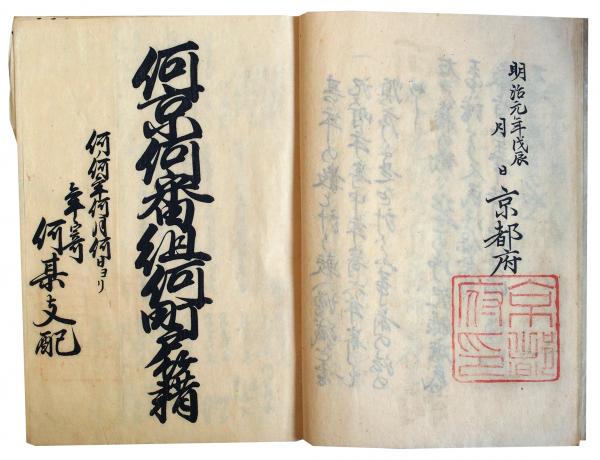 明治元年戊辰
月 日 京都府
京都府印
何京何番組何町戸籍
何ノ何年何月何日ヨリ
年寄
何某支配